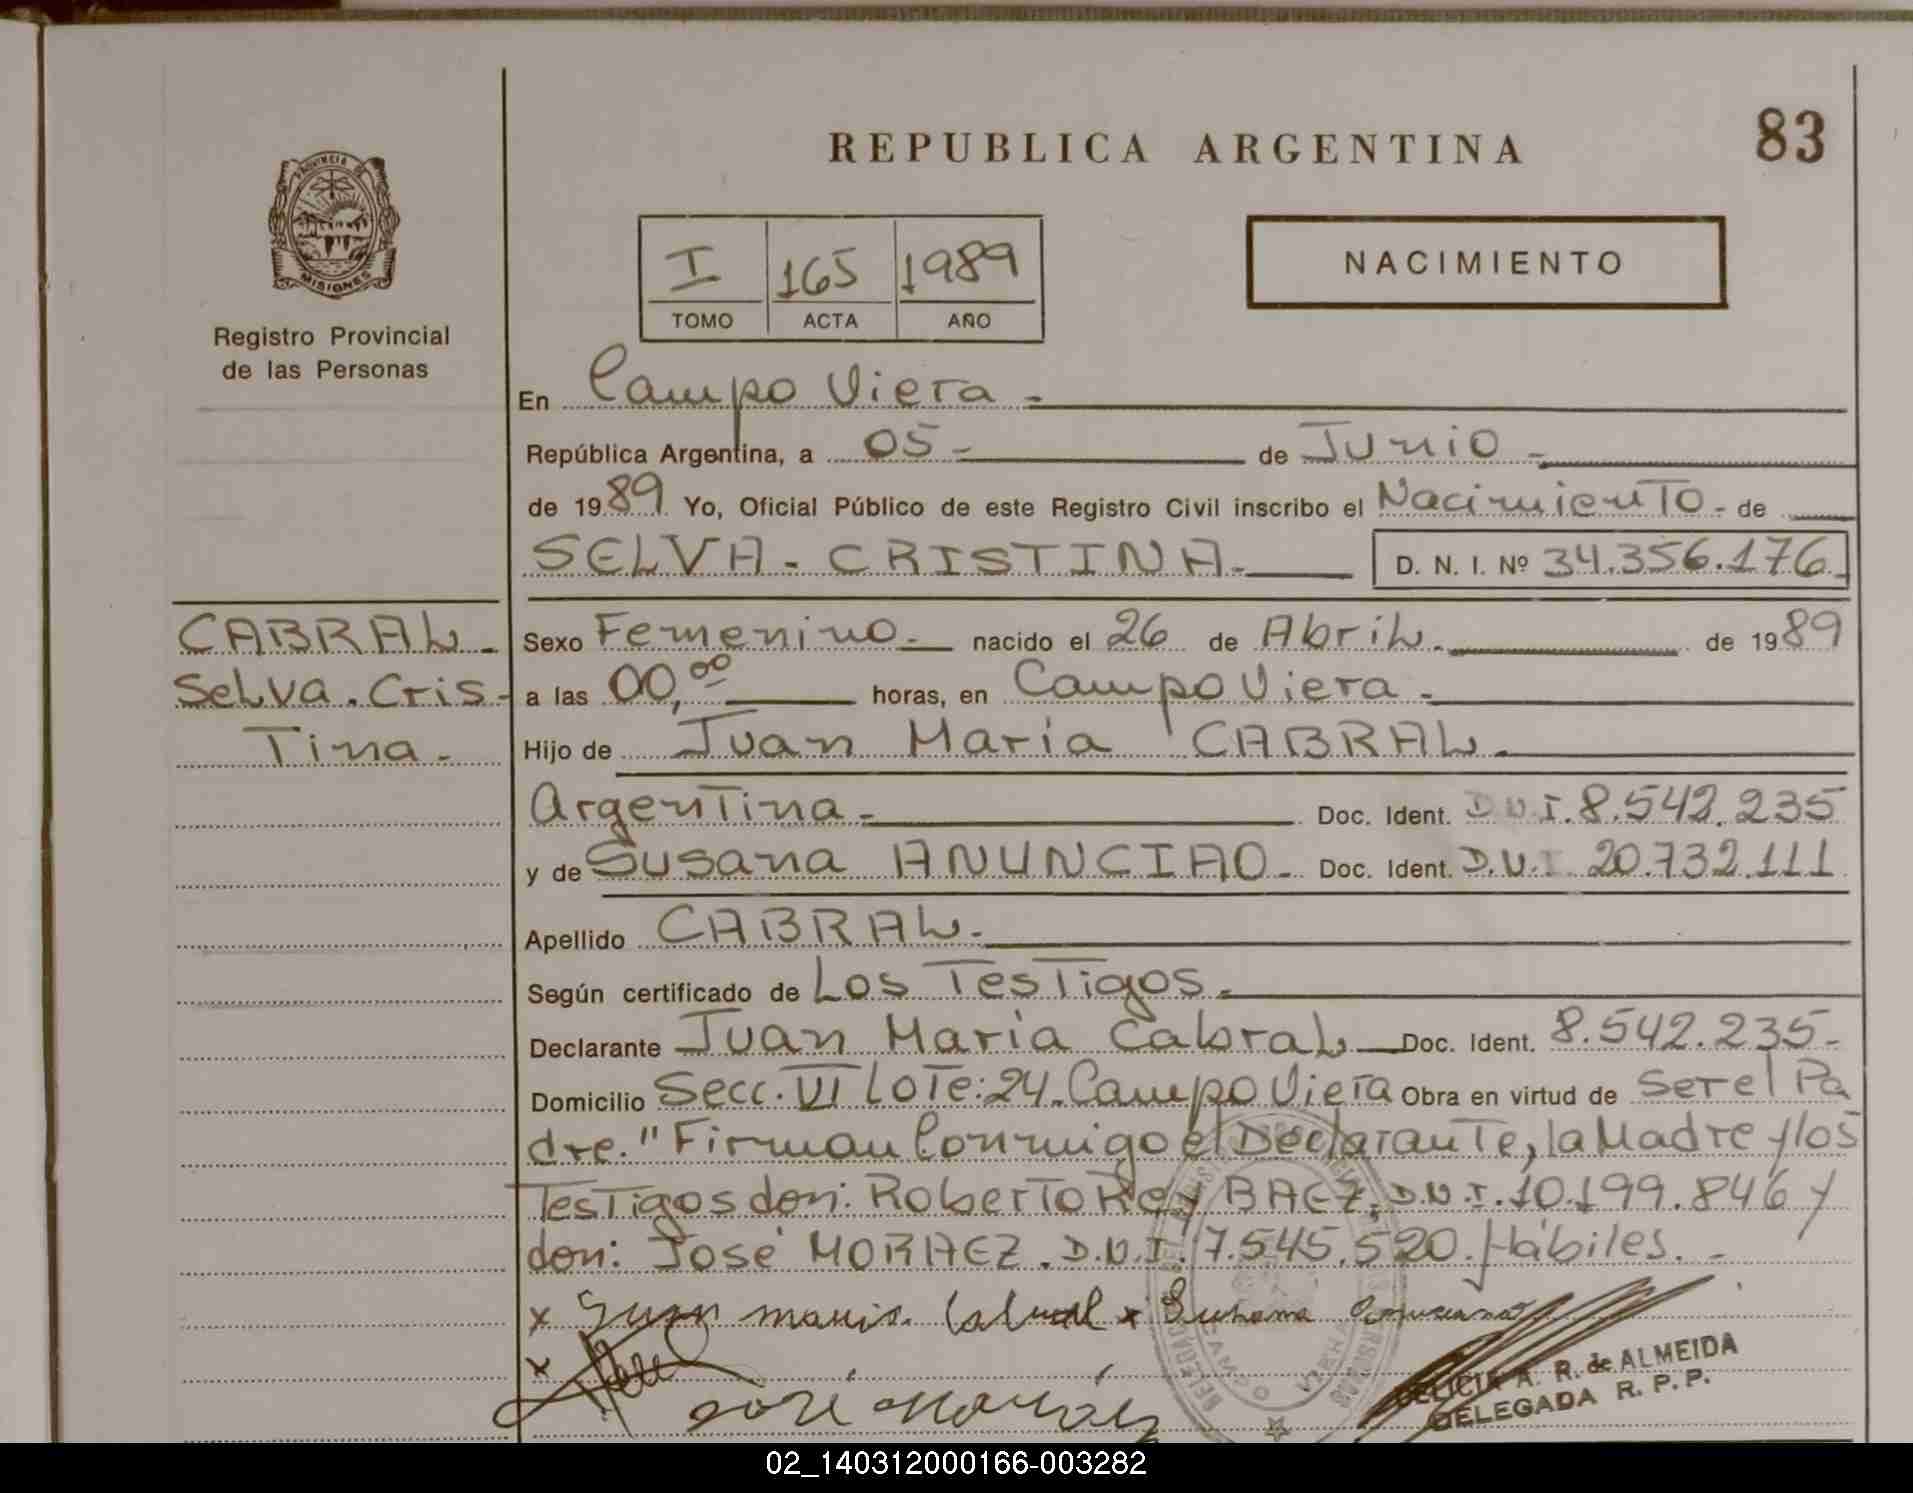 REPUBLICA ARGENTINA
83
PROVINCIA DE
MISIONES
Registro Provincial
de las Personas
I 165 1989
TOMO ACTA AÑO
NACIMIENTO
En Campo Viera -
República Argentina, a 05 - de Junio -
de 1989 Yo, Oficial Público de este Registro Civil inscribo el Nacimiento - de
SELVA - CRISTINA - D. N. I. Nº 34.356.176
CABRAL -
Selva . Cris-
Tina -
Sexo Femenino - nacido el 26 de Abril - de 1989
a las 00,00 horas, en Campo Viera -
Hijo de Juan María CABRAL -
Argentina - Doc. Ident. D.N.I. 8.542.235
y de Susana ANUNCIAO - Doc. Ident. D.N.I. 20.732.111
Apellido CABRAL -
Según certificado de Los Testigos -
Declarante Juan María Cabral Doc. Ident. 8.542.235 -
Domicilio Secc. VI Lote: 24 - Campo Viera Obra en virtud de ser el Pa
dre. " Firman Conmigo el Declarante, la Madre y los
Testigos don: Roberto Rey BAEZ, D.N.I. 10.199.846 y
don: José MORAEZ . D.N.I. 7.545.520 . Hábiles. -
x Juan maria Cabral x Susana
x
José
DELICIA A. R. de ALMEIDA
DELEGADA R. P. P.
02_140312000166-003282